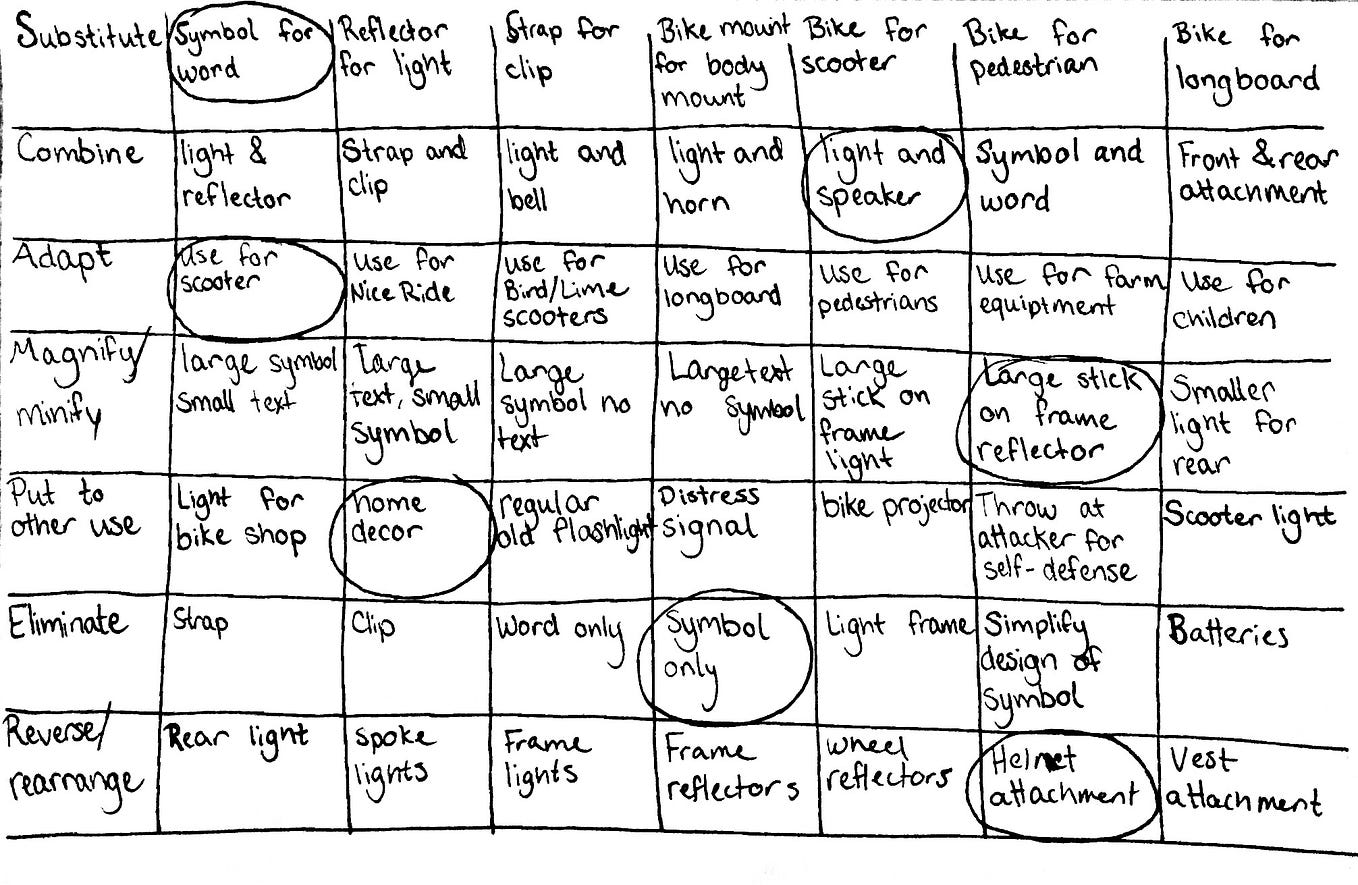 Substitute
Symbol for
word
Reflector
for light
Strap for
clip
Bike mount
for body
mount
Bike for
scooter
Bike for
pedestrian
Bike for
longboard
Combine
light &
reflector
Strap and
clip
light and
bell
light and
horn
light and
speaker
Symbol and
word
Front & rear
attachment
Adapt
use for
scooter
use for
Nice Ride
use for
Bird/Lime
scooters
Use for
longboard
use for
pedestrians
use for farm
equiptment
Use for
children
Magnify/
minify
large symbol
small text
Large
text, small
symbol
Large
symbol no
text
Large text
no symbol
Large
stick on
frame
light
Large stick
on frame
reflector
Smaller
light for
rear
Put to
other use
Light for
bike shop
home
decor
regular
old flashlight
Distress
signal
bike projector
Throw at
attacker for
self-defense
Scooter light
Eliminate
Strap
Clip
Word only
Symbol
only
Light frame
Simplify
design of
symbol
Batteries
Reverse/
rearrange
Rear light
spoke
lights
Frame
lights
Frame
reflectors
wheel
reflectors
Helmet
attachment
Vest
attachment